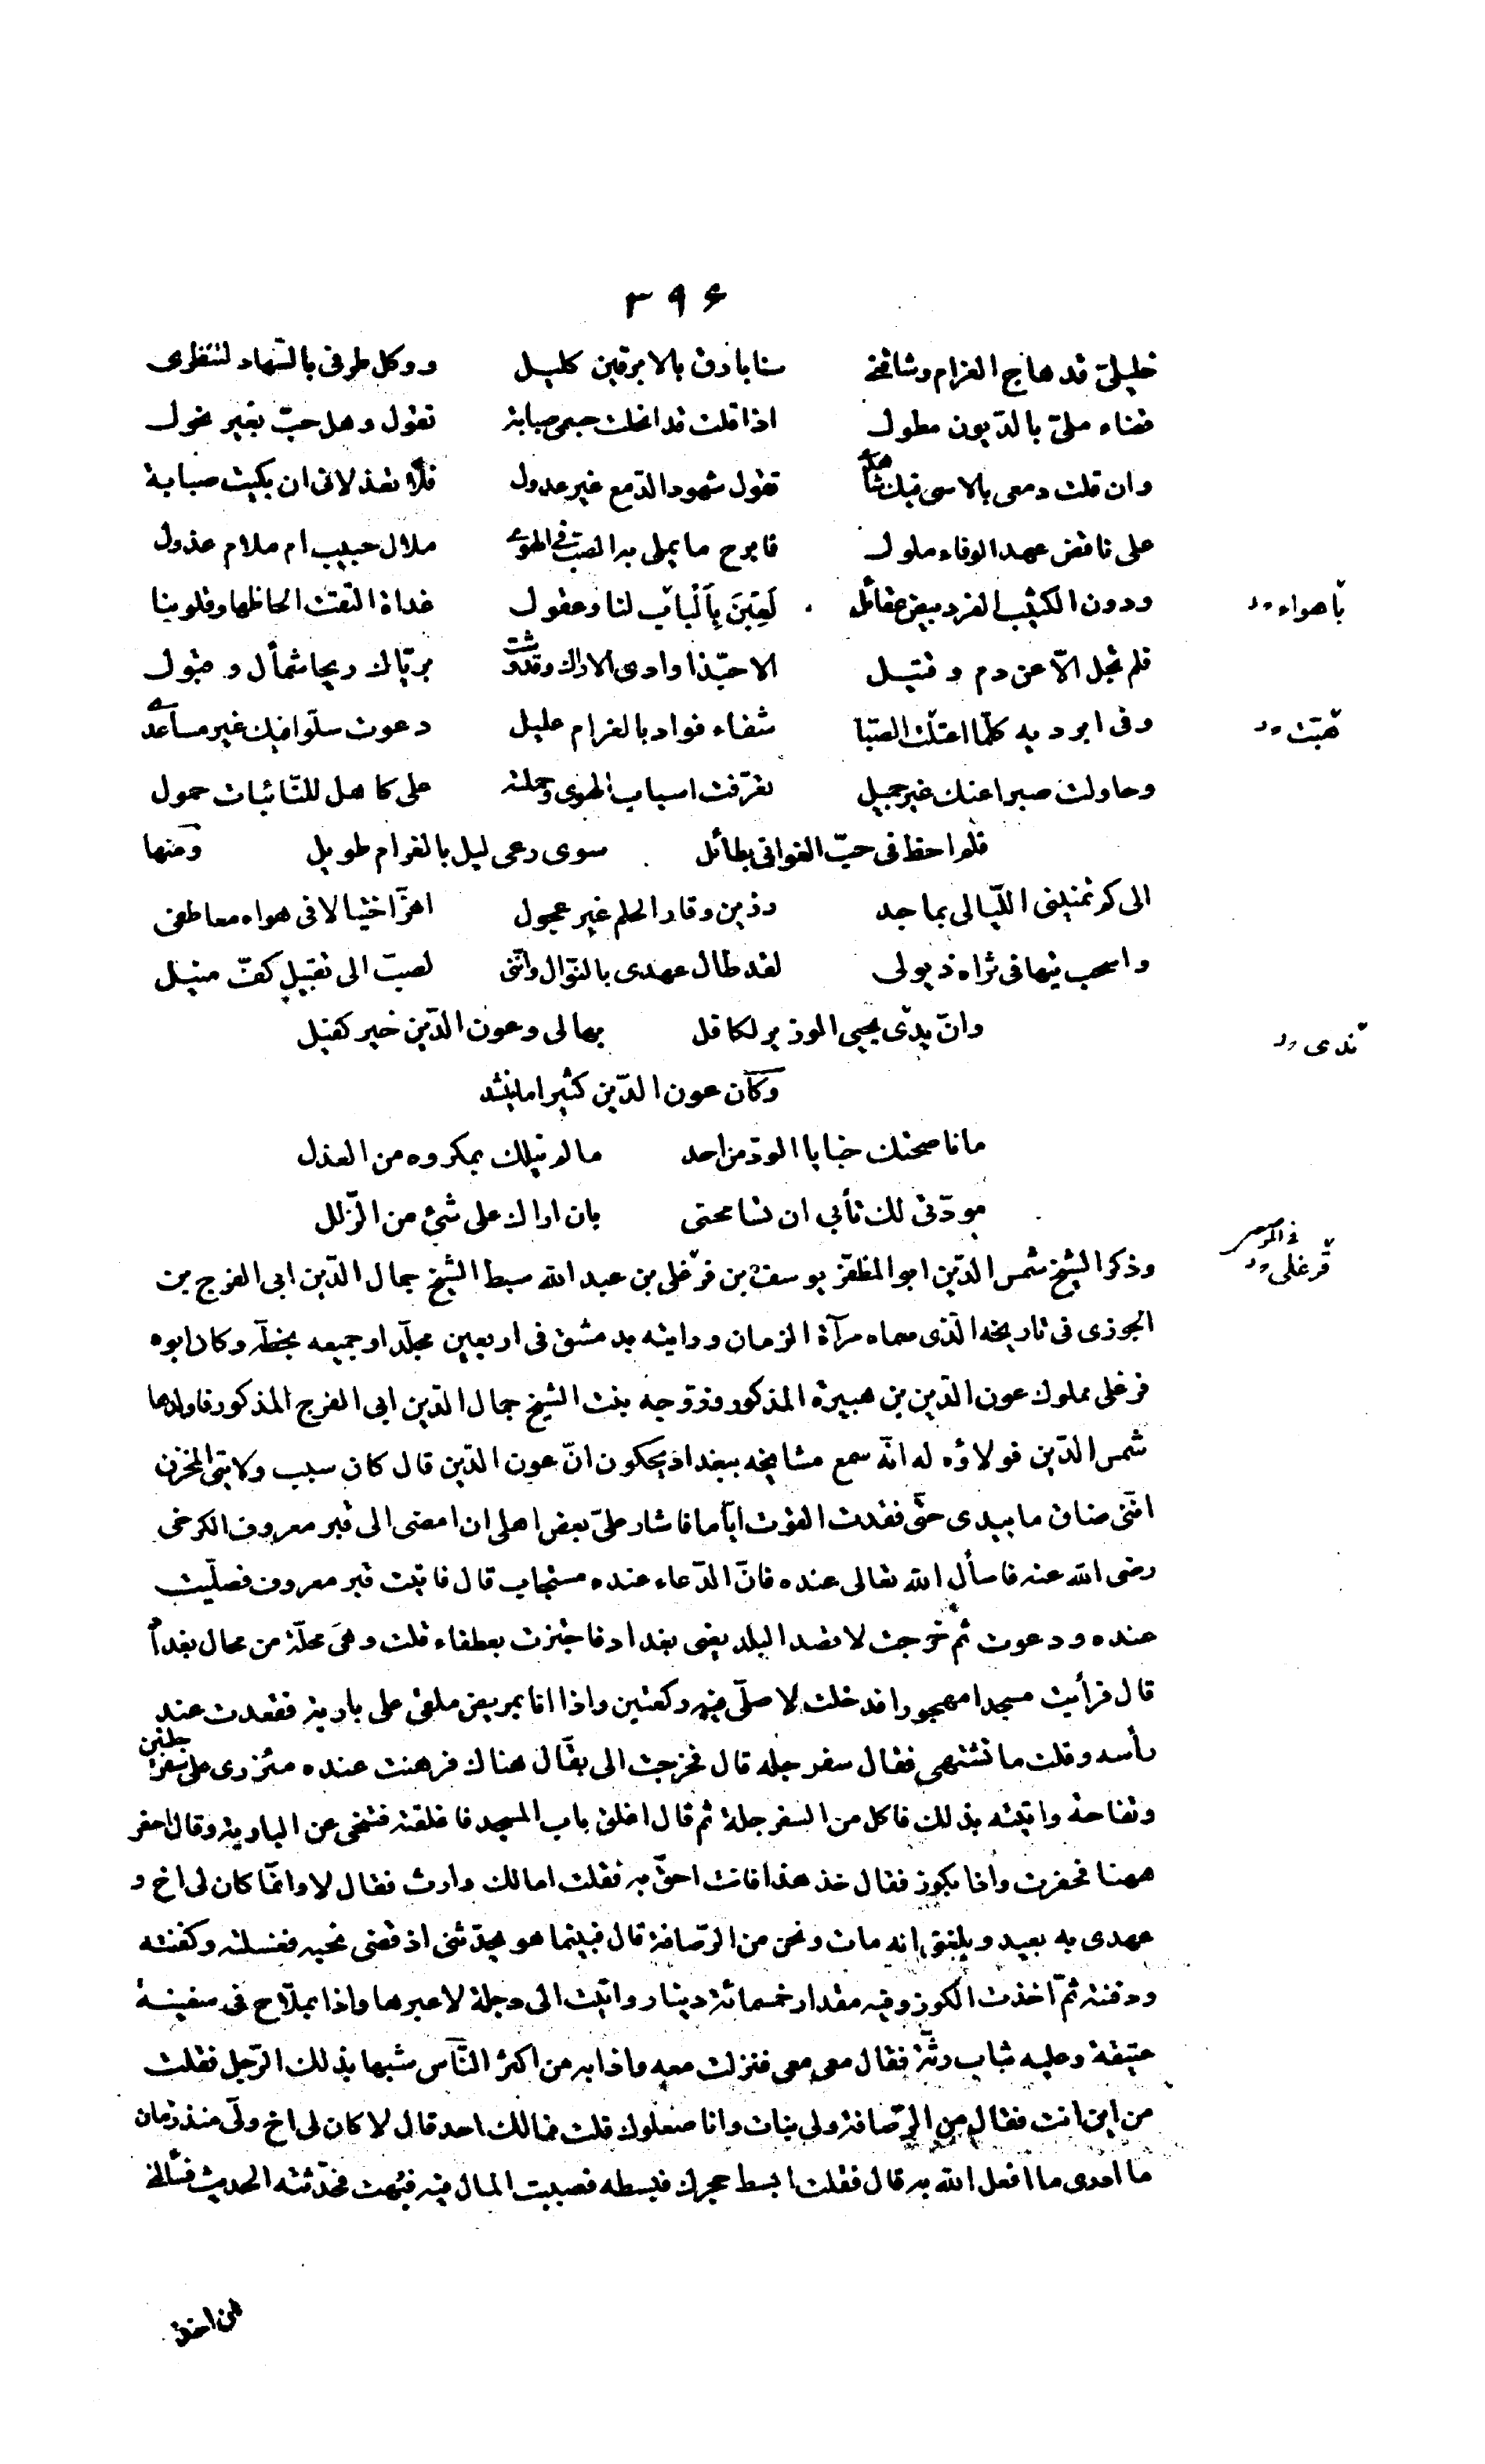 ٣٩۶
خليلىّ قد هاج الغرام وشاقنى سنا بارق بالابرقين كليل ووكل طرفى بالسّهاد لتنظرى
قضاء ملىّ بالدّيون مطول اذا قلت قد انحلت جسمى صبابة تقول وهل حبّ بغير نحول
وان قلت دمعى بالاسى فيك شاهد تقول شهود الدّمع غير عدول فلا تعذلانى ان بكيت صبابة
على ناقض عهد الوفاء ملول فابرح ما يملى به الصبّ فى الهوى ملال حبيب ام ملام عذول
ودون الكثيب الفرد بيض عقائل لَعِبْنَ بِأَلْباب لنا وعقول غداة التقت الحاظها وقلوبنا
باهواء
فلم تجل الّا عن دم وقتيل الا حبّذا وادى الاراك وقد وشت بريّاك ريحا شمأل وقبول
وفى ابرديه كلّما اعتلّت الصّبا شفاء فواد بالغرام عليل دعوت سلوّا فيك غير مساعدى
هبّت
وحاولت صبرا عنك غير جميل تفرّقت اسباب الهوى وحملته على كاهل للنّائبات حمول
فلم احظ فى حبّ الغوانى بطائل سوى رعى ليل بالغرام طويل ومنها
الى كم تمنّينى اللّيالى بماجد رزين وقار الحلم غير عجول اهزّ اختيالا فى هواه معاطفى
واسحب تيها فى ثراه ذيولى لقد طال عهدى بالنّوال وانّنى لصبّ الى تقبيل كفّ منيل
وانّ يدى يحيى الوزير لكافل بها لى وعون الدّين خير كفيل
ندى
وكان عون الدّين كثيرا ما ينشد
ما ناصحتك خبايا الودّ من احد ما لم ينلك بمكروه من العذل
مودّتى لك تأبى ان تسامحنى بان اراك على شئ من الزّلل
قزغلى
وذكر الشيخ شمس الدّين ابو المظفّر يوسف بن قزغلى بن عبد الله سبط الشيخ جمال الدّين ابى الفرج بن
الجوزى فى تاريخه الّذى سماه مرآة الزمان ورايته بدمشق فى اربعين مجلّدا وجميعه بخطّه وكان ابوه
قزغلى مملوك عون الدّين بن هبيرة المذكور وزوّجه بنت الشيخ جمال الدّين ابى الفرج المذكور فاولدها
شمس الدّين فولاؤه له انّه سمع مشايخه ببغداد يحكون انّ عون الدّين قال كان سبب ولايتى المخزن
انّنى ضاق ما بيدى حتّى فقدت القوت ايّاما فاشار علىّ بعض اهلى ان امضى الى قبر معروف الكرخى
رضى الله عنه فاسأل الله تعالى عنده فانّ الدّعاء عنده مستجاب قال فاتيت قبر معروف فصلّيت
عنده ودعوت ثم خرجت لاقصد البلد يعنى بغداد فاجتزت بعطفاء قلت وهى محلّة من محال بغداد
قال فرأيت مسجدا مهجورا فدخلت لاصلّى فيه ركعتين واذا انا بمريض ملقى على بارية فقعدت عند
رأسه وقلت ما تشتهى فقال سفرجلة قال فخرجت الى بقّال هناك فرهنت عنده مئزرى على سفرجلتين
وتفاحة واتيته بذلك فاكل من السفرجلة ثم قال اغلق باب المسجد فاغلقته فتنحى عن البارية وقال احفر
ههنا فحفرت واذا بكوز فقال خذ هذا فانت احقّ به فقلت اما لك وارث فقال لا وانّما كان لى اخ و
عهدى به بعيد وبلغنى انه مات ونحن من الرّصافة قال فبينما هو يحدّثنى اذ قضى نحبه فغسلته وكفنته
ودفنته ثمّ اخذت الكوز وفيه مقدار خمسمائة دينار واتيت الى دجلة لاعبرها واذا بملّاح فى سفينة
عتيقة وعليه ثياب رثّة فقال معى معى فنزلت معه واذا به من اكثر النّاس شبها بذلك الرّجل فقلت
من اين انت فقال من الرّصافة ولى بنات وانا صعلوك قلت فما لك احد قال لا كان لى اخ ولى منذ زمان
ما ادرى ما افعل الله به قال فقلت ابسط حجرك فبسطه فصببت المال فيه فبُهت فحدّثته الحديث فسألنى